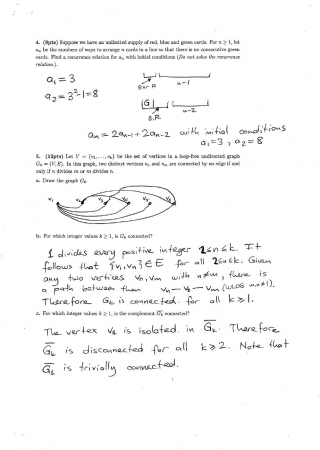 4. (8pts) Suppose we have an unlimited supply of red, blue and green cards. For n ≥ 1, let
aₙ be the numbers of ways to arrange n cards in a line so that there is no consecutive green
cards. Find a recurrence relation for aₙ with initial conditions (Do not solve the recurrence
relation.).
a₁ = 3
a₂ = 3²-1 = 8
B or R
n-1
G
n-2
B,R
aₙ = 2aₙ₋₁ + 2aₙ₋₂ with initial conditions
a₁=3, a₂=8
5. (12pts) Let V = {v₁, ..., vₖ} be the set of vertices in a loop-free undirected graph
Gₖ = (V, E). In this graph, two distinct vertices vₙ and vₘ are connected by an edge if and
only if n divides m or m divides n.
a. Draw the graph G₆
v₁ v₂ v₃ v₄ v₅ v₆
b. For which integer values k ≥ 1, is Gₖ connected?
1 divides every positive integer 2≤n≤k. It
follows that {v₁,vₙ} ∈ E for all 2≤n≤k. Given
any two vertices vₙ, vₘ with n≠m, there is
a path between them vₙ - v₁ - vₘ (WLOG n,m≠1).
Therefore Gₖ is connected for all k ≥ 1.
c. For which integer values k ≥ 1, is the complement G̅ₖ connected?
The vertex v₁ is isolated in G̅ₖ. Therefore
G̅ₖ is disconnected for all k ≥ 2. Note that
G̅₁ is trivially connected.